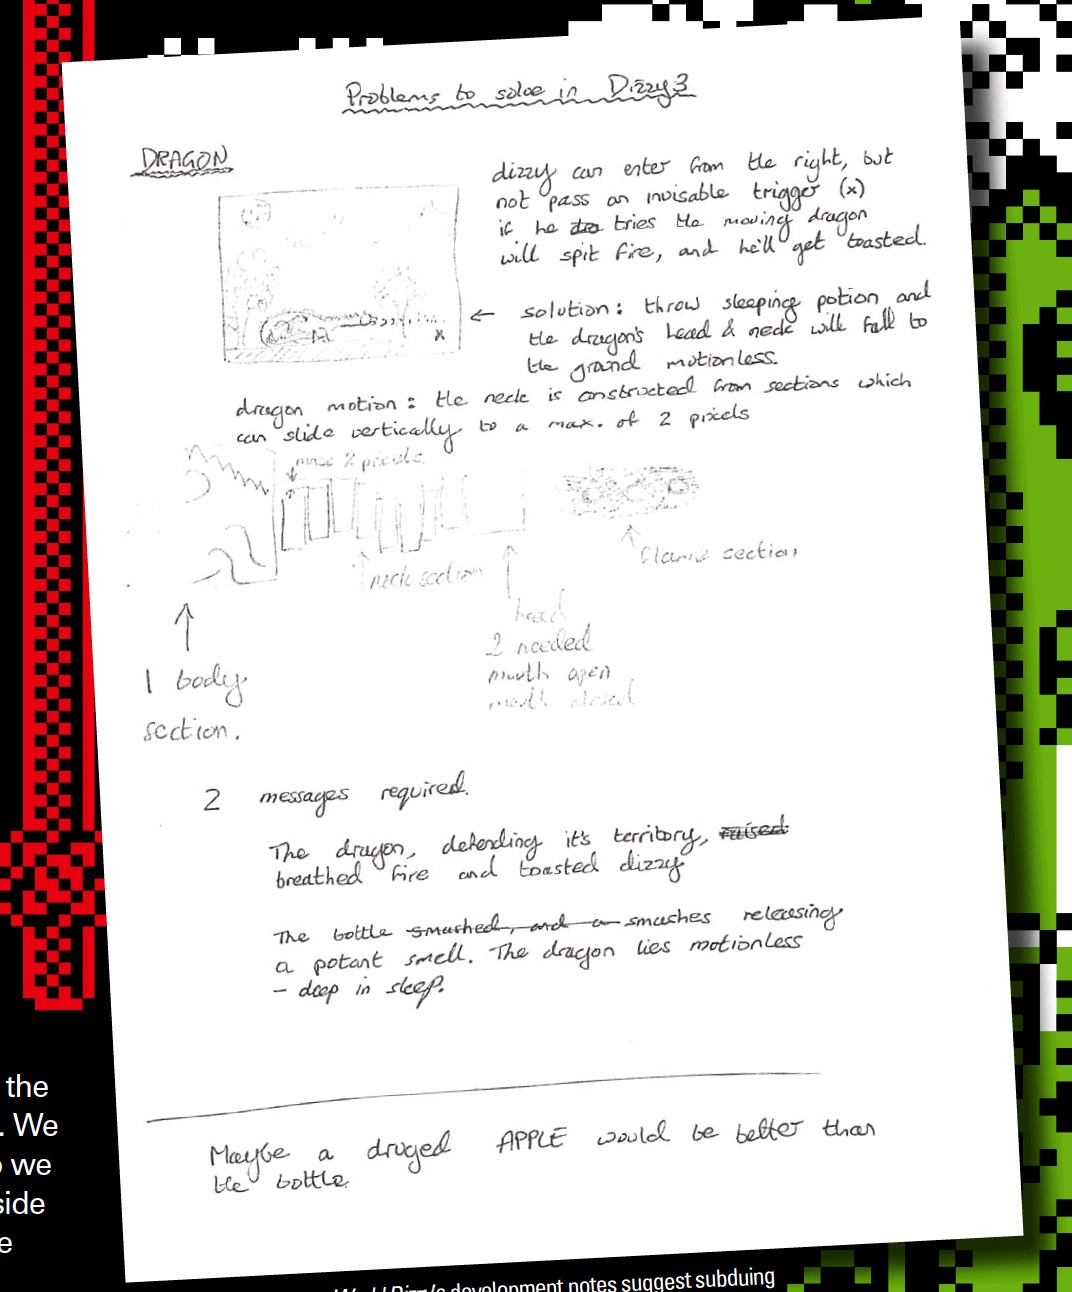 Problems to solve in Dizzy 3
DRAGON
dizzy can enter from the right, but
not pass an invisable trigger (x)
if he tries the moving dragon
will spit fire, and he'll get toasted.
x
← solution: throw sleeping potion and
the dragon's head & neck will fall to
the grand motionless.
dragon motion: the neck is constructed from sections which
can slide vertically to a max. of 2 pixels
max 2 pixels
neck section
flame section
head
2 needed
mouth open
mouth closed
1 body
section.
2 messages required.
The dragon, defending it's territory, raised
breathed fire and toasted dizzy
The bottle smashed, and a smashes releasing
a potant smell. The dragon lies motionless
- deep in sleep.
Maybe a druged APPLE would be better than
the bottle.
the
. We
we
side
development notes suggest subduing